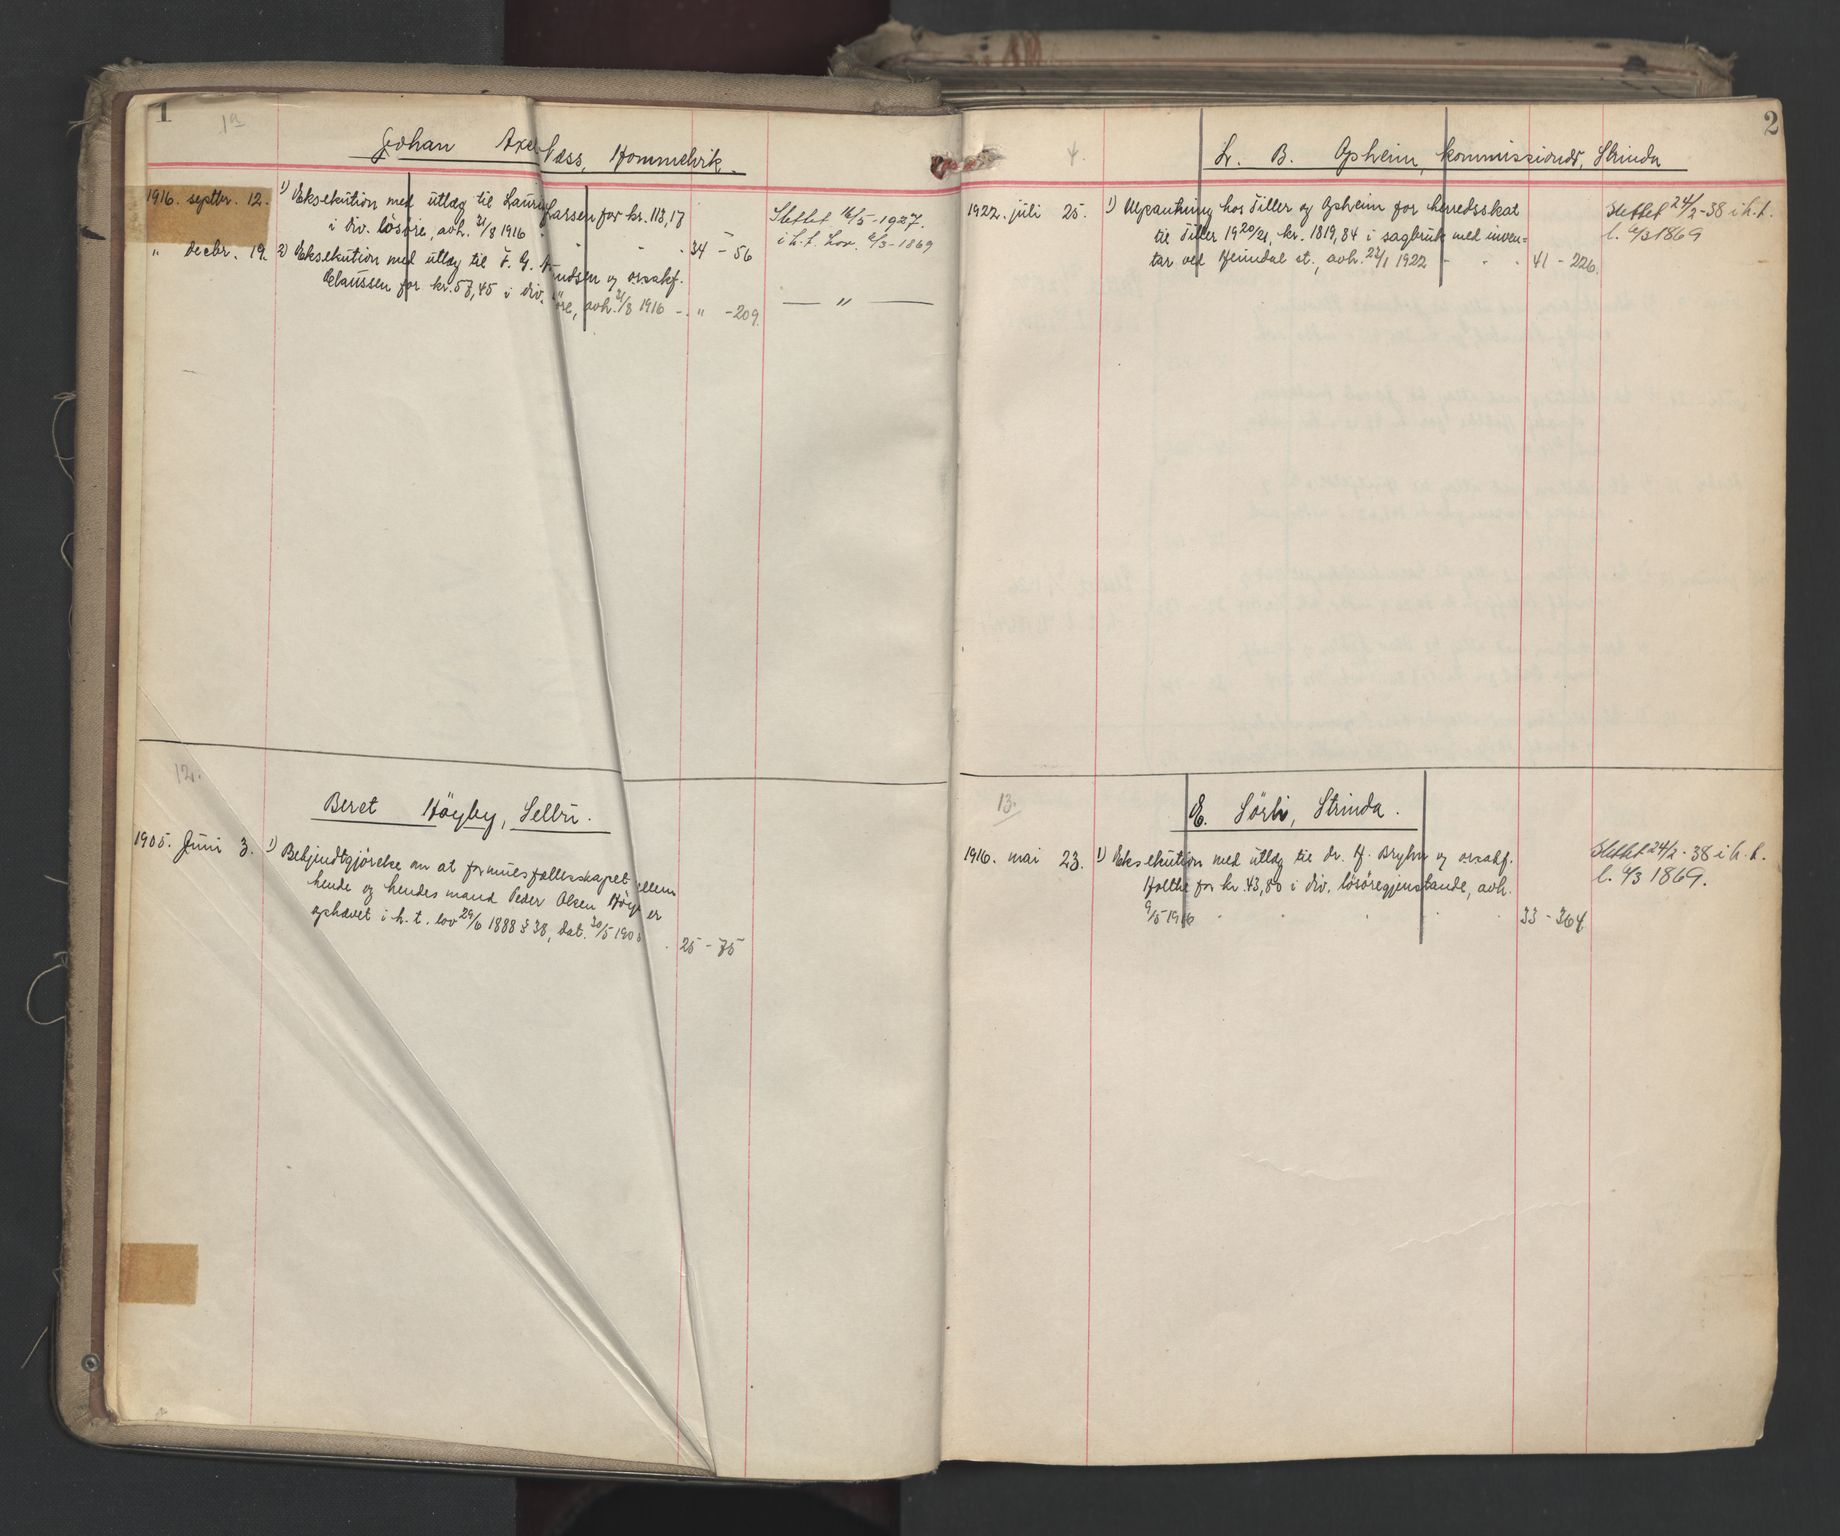 1
1a
Johan Axel Næss, Hommelvik.
1916. septbr. 12. 1) Eksekution med utlæg til Laurits Larsen for kr. 113,17
i div. lösöre, avh. 31/8 1916 34 - 56
Slettet 16/5-1927.
i h.t. Lov. 6/3-1869
" decbr. 19. 2) Eksekution med utlæg til F. G. A ndsen og orsakf.
Claussen for kr. 57,45 i div. löre, avh. 31/8 1916 - " - 209.
— " —
12.
Beret Höyby, Selbu.
1905. Juni 3. 1) Bekjendtgjörelse om at formuesfællesskapet mellem
hende og hendes mand Peder Olsen Höyby er
ophævet i h. t. lov 29/6 1888 § 38, dat. 30/5 1905 25 - 75
2
4.
L. B. Opheim, kommissionær, Strinda
1922. juli 25. 1) Utpantning hos Tiller og Opheim for herredsskat
til Tiller 1920/21, kr. 1819,84 i sagbruk med inven=
tar ved Heimdal st., avh. 23/1 1922 - 41 - 226.
Slettet 24/2-38 i h.t.
l. 6/3 1869
13.
E. Sörli, Strinda.
1916. mai 23. 1) Eksekution med utlæg til dr. H. Bryhn og orsakf.
Holthe for kr. 43,80 i div. lösöregjenstande, avh.
9/5 1916 33 - 364
Slettet 24/2 - 38 i h. t.
l. 6/3 1869.